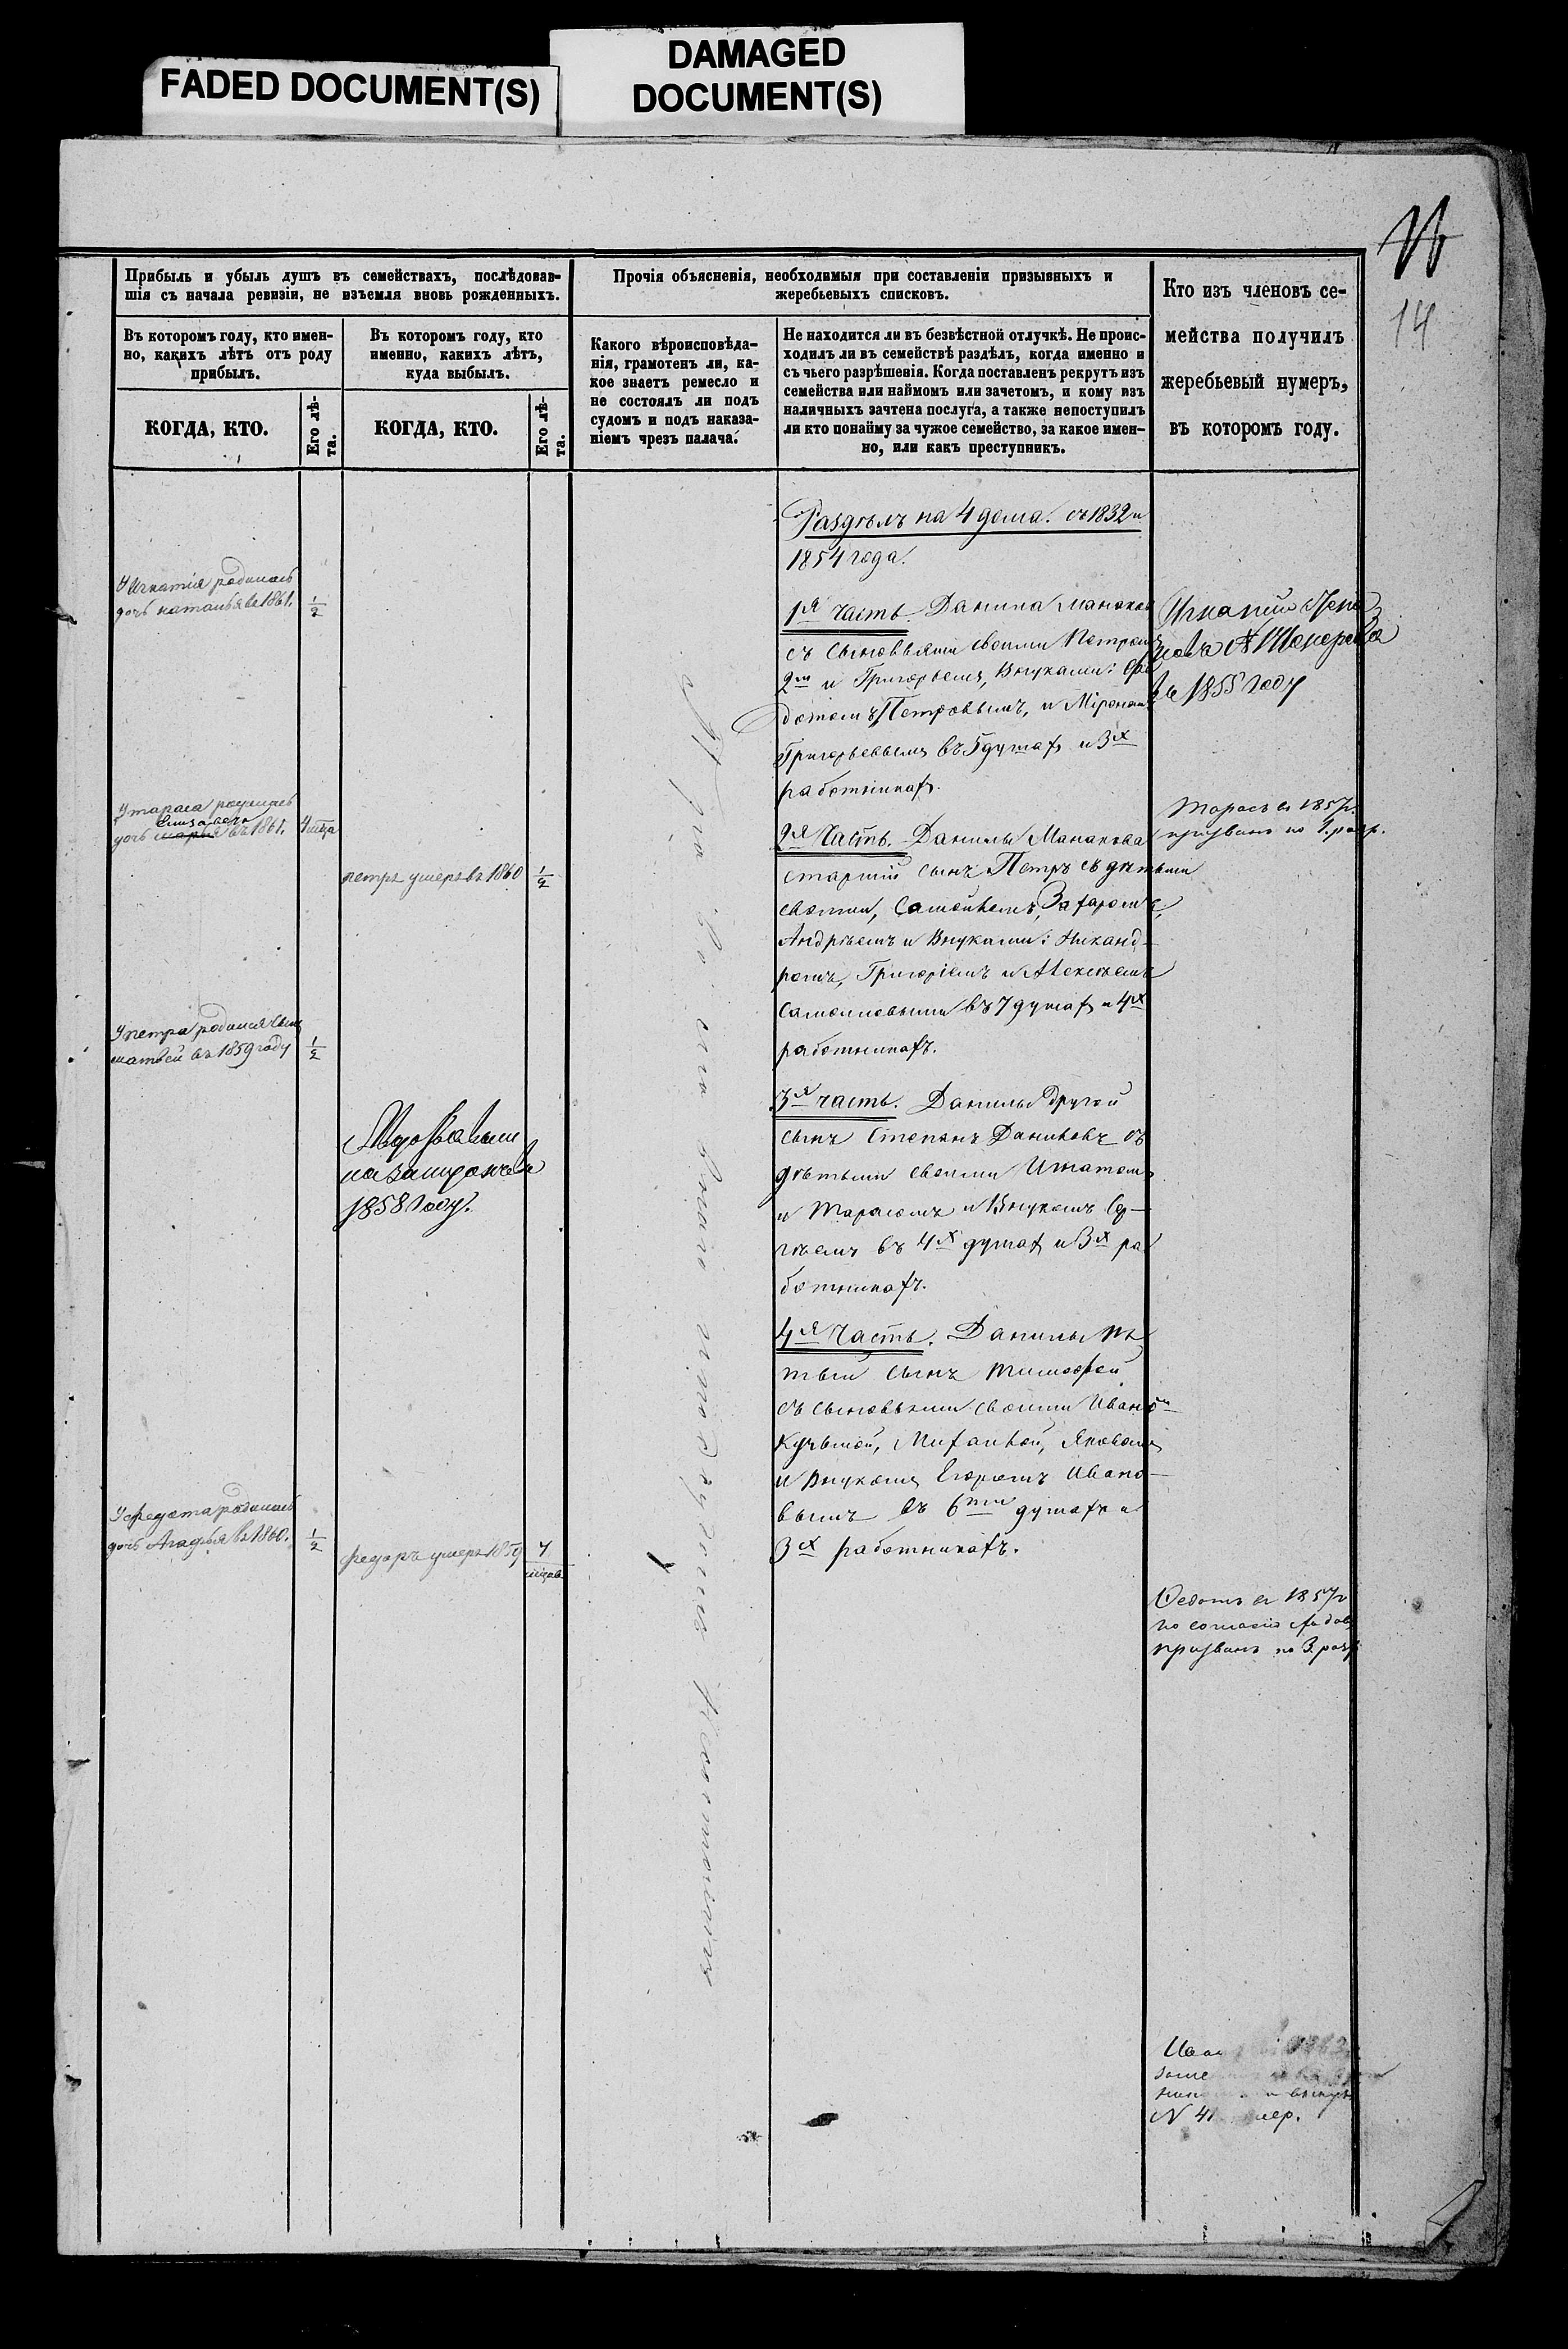 FADED DOCUMENT(S)
DAMAGED
DOCUMENT(S)
14
Прибыль и убыль душъ въ семействахъ, послѣдовав-
шія съ начала ревизіи, не изъемля вновь рожденныхъ.
Въ которомъ году, кто имен-
но, какихъ лѣтъ отъ роду
прибылъ.
КОГДА, КТО.
Его лѣ-
та.
Въ которомъ году, кто
именно, какихъ лѣтъ,
куда выбылъ.
КОГДА, КТО.
Его лѣ-
та.
Прочія объясненія, необходимыя при составленіи призывныхъ и
жеребьевыхъ списковъ.
Какого вѣроисповѣда-
нія, грамотенъ ли, ка-
кое знаетъ ремесло и
не состоялъ ли подъ
судомъ и подъ наказа-
ніемъ чрезъ палача.
Не находится ли въ безвѣстной отлучкѣ. Не проис-
ходилъ ли въ семействѣ раздѣлъ, когда именно и
съ чьего разрѣшенія. Когда поставленъ рекрутъ изъ
семейства или наймомъ или зачетомъ, и кому изъ
наличныхъ зачтена послуга, а также непоступилъ
ли кто понайму за чужое семейство, за какое имен-
но, или какъ преступникъ.
Кто изъ членовъ се-
мейства получилъ
жеребьевый нумеръ,
въ которомъ году.
У Игнатія родилась
дочь наталья въ 1861. 1/2
У тараса родилась
елизавета
дочь марья въ 1861. 4 мѣца
У петра родился сынъ
матвей въ 1859 году 1/2
У федота родилась
дочь Агафья въ 1860. 1/2
петръ умеръ въ 1860 1/2
1858 году.
федоръ умеръ 1859
Раздѣлъ на 4 дома. съ 1832 и
1854 года.
1я часть. Данила Манаков
съ сыновьями своими Петромъ
2м и Григорьемъ, Внуками: Фе
дотомъ Петровымъ, и Мірономъ
Григорьевымъ въ 5 душахъ и 3х
работникахъ.
2я Часть. Данилы Манакова
старшій сынъ Петръ съ дѣтьми
своими, Самойлемъ, Захаромъ,
Андрѣемъ и Внуками: Никанд-
ромъ, Григоріемъ и Алексѣемъ
Самойловыми въ 7 душах и 4х
работникахъ.
3я часть. Данилы другой
сынъ Степанъ Даниловъ съ
дѣтьми своими Игнатомъ
и Тарасомъ и Внукомъ Сер-
гѣемъ въ 4х душах и 3х ра
ботникахъ.
4я Часть. Данилы тре
тьи сынъ Тимофей
съ сыновьями своими Иваномъ
Кузьмой, Михайлой, Яковомъ
и Внукомъ Егоромъ Ивано-
вымъ въ 6ти душахъ и
3х работникахъ.
въ 1855 году
Тарасъ въ 1857 г.
призванъ по 1. разр.
Федотъ въ 1857 г
призванъ по 3. разр
N 41